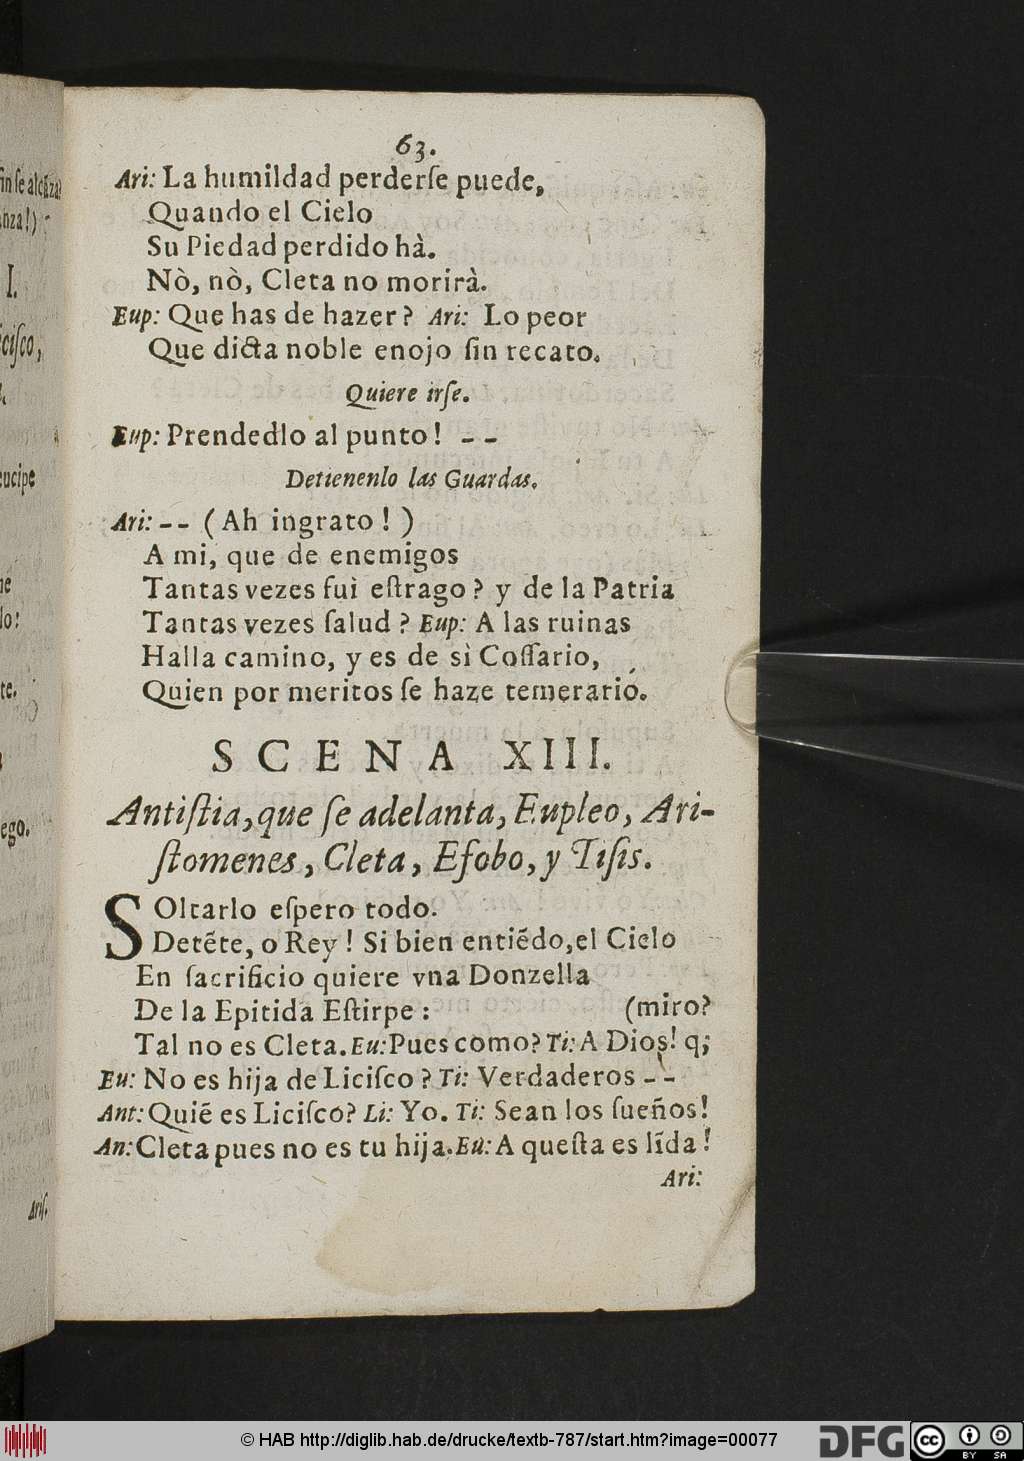 63.
Ari: La humildad perderſe puede,
Quando el Cielo
Su Piedad perdido hà.
Nò, nò, Cleta no morirà.
Eup: Que has de hazer? Ari: Lo peor
Que dicta noble enojo ſin recato.
Quiere irſe.
Eup: Prendedlo al punto! - -
Detienenlo las Guardas.
Ari: - - (Ah ingrato!)
A mi, que de enemigos
Tantas vezes fuì eſtrago? y de la Patria
Tantas vezes ſalud? Eup: A las ruinas
Halla camino, y es de sì Coſſario,
Quien por meritos ſe haze temerario.
SCENA XIII.
Antiſtia, que ſe adelanta, Eupleo, Ari-
ſtomenes, Cleta, Efobo, y Tiſis.
SOltarlo eſpero todo.
Detẽte, o Rey! Si bien entiẽdo, el Cielo
En ſacrificio quiere vna Donzella
De la Epitida Eſtirpe: (miro?
Tal no es Cleta. Eu: Pues como? Ti: A Dios! q;
Eu: No es hija de Liciſco? Ti: Verdaderos - -
Ant: Quiẽ es Liciſco? Li: Yo. Ti: Sean los ſueños!
An: Cleta pues no es tu hija. Eu: A queſta es lĩda!
Ari:
ſin ſe alcãza?
anza!)
I.
ciſco,
ucipe
ne
lo!
te.
ego.
Ariſ.
© HAB http://diglib.hab.de/drucke/textb-787/start.htm?image=00077
DFG
cc
BY SA